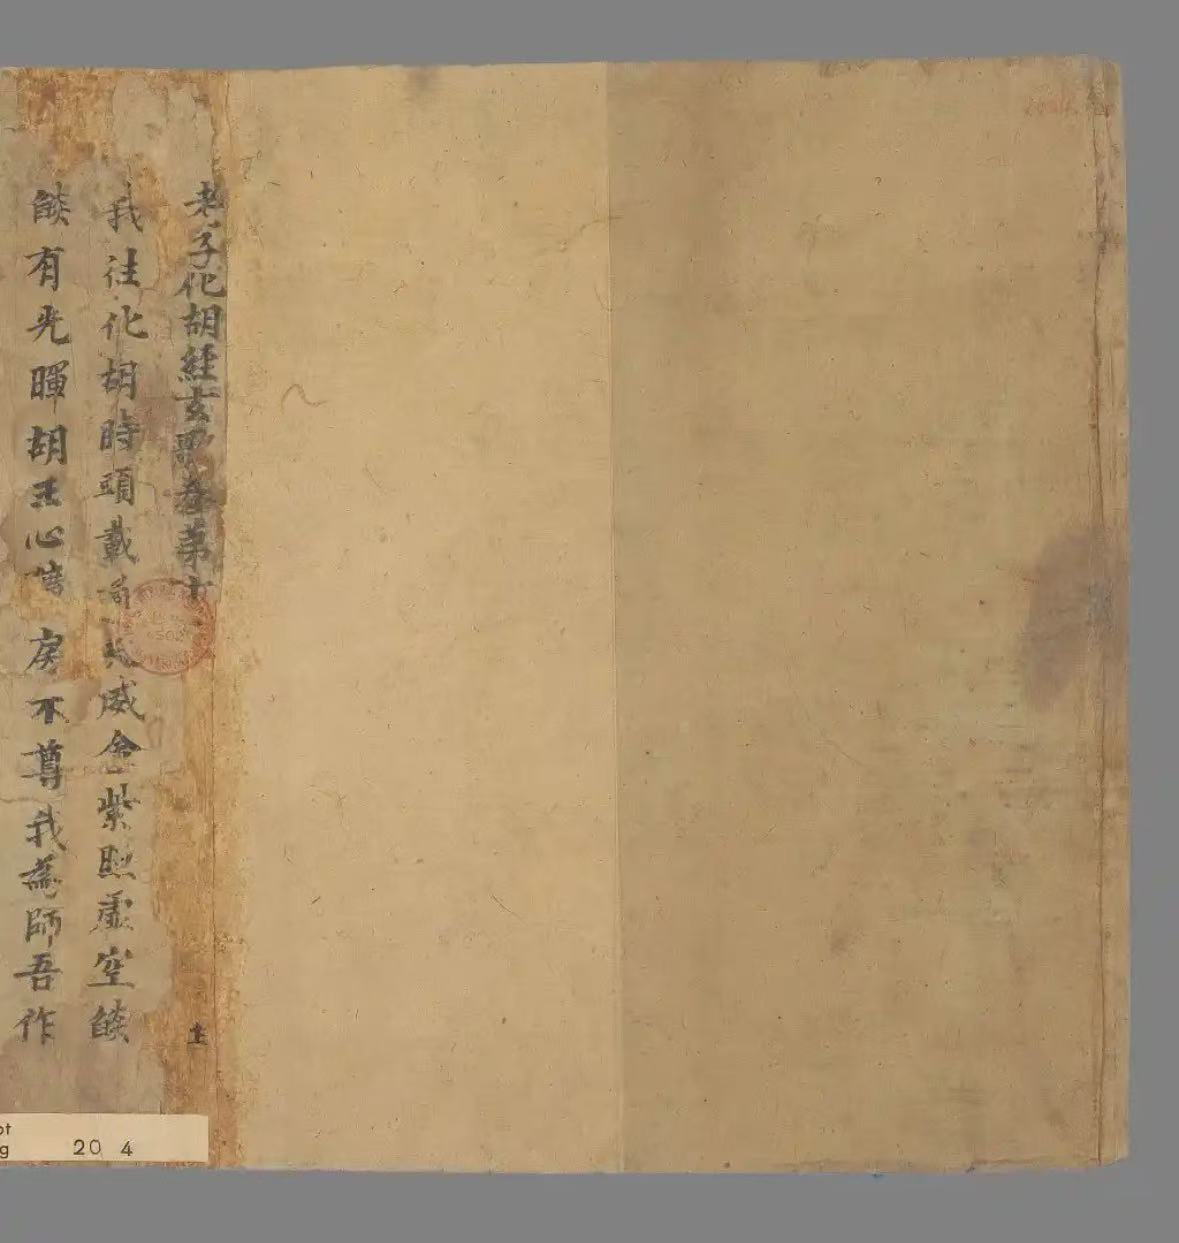 老子化胡經玄歌卷第十
我往化胡時頭戴 威金紫照虛空焰
焰有光暉胡王心 戾不尊我為師吾作
ot
g 20 4